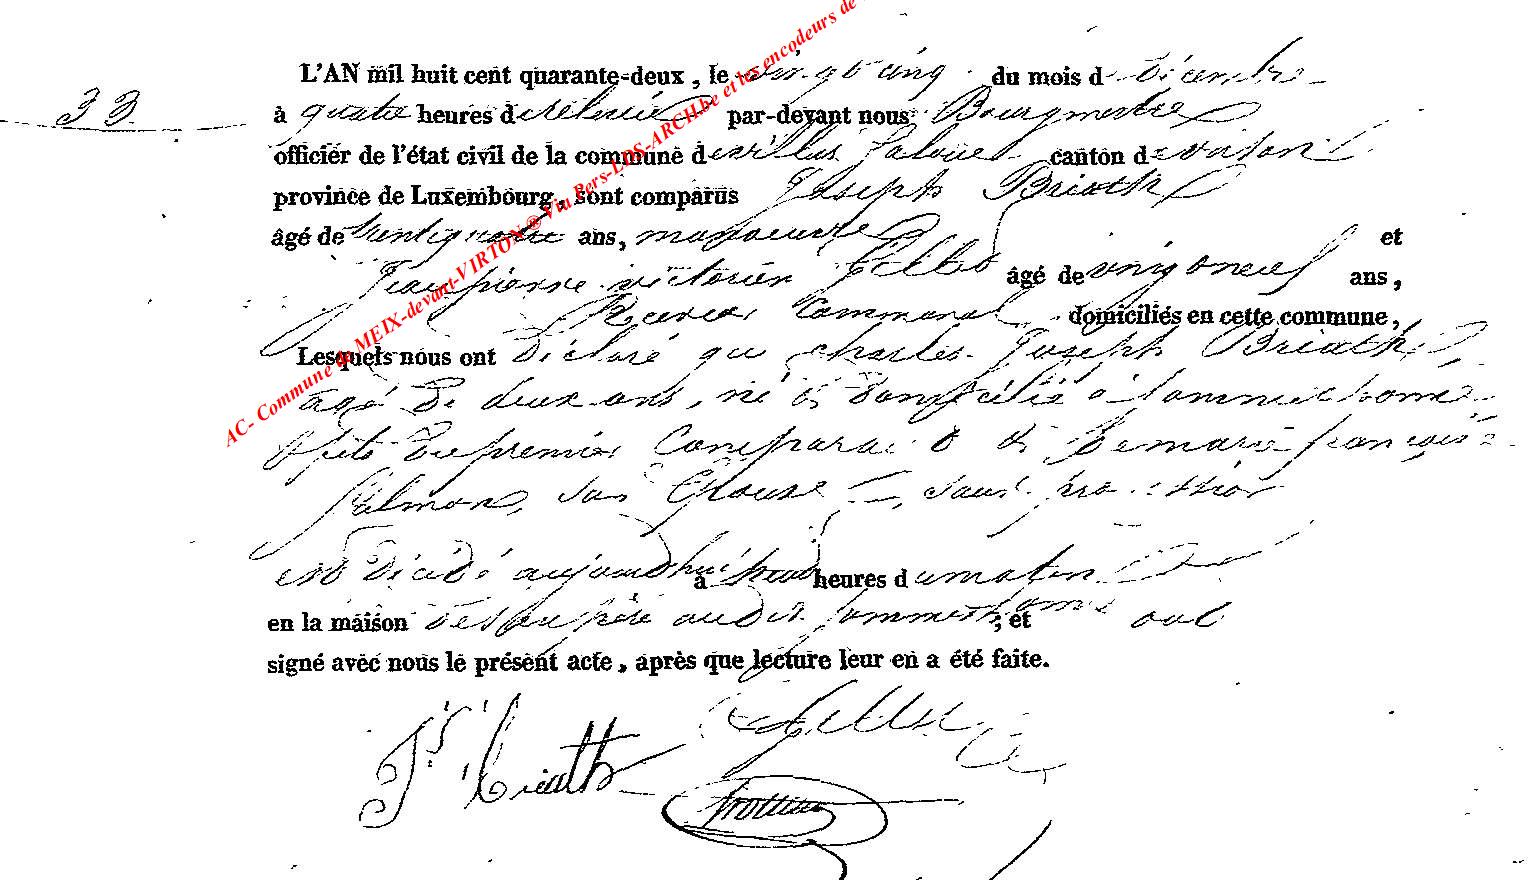 AC- Commune de MEIX-devant-VIRTON ® Via Pers-LDS-ARCH.be et les encodeurs de
33
L'AN mil huit cent quarante-deux, le vingt cinq du mois de Décembre
à quatre heures de relevée par-devant nous Bourgmestre
officier de l'état civil de la commune de villers canton de virton
province de Luxembourg, sont comparus Joseph Briath
âgé de ans, manoeuvre et
Jean pierre victorien âgé de vingt neuf ans,
Receveur Communal domiciliés en cette commune,
Lesquels nous ont Déclaré que charles Joseph Briath
agé De deux ans, né et Domicilié à Sommethonne
fils Du premier Comparant et De marie françoise
Salmon, son Epouse, sans profession
est Décédé aujourd'hui à heures du matin
en la maison De son père audit Sommethonne ; et ont
signé avec nous le présent acte, après que lecture leur en a été faite.
Js Briath